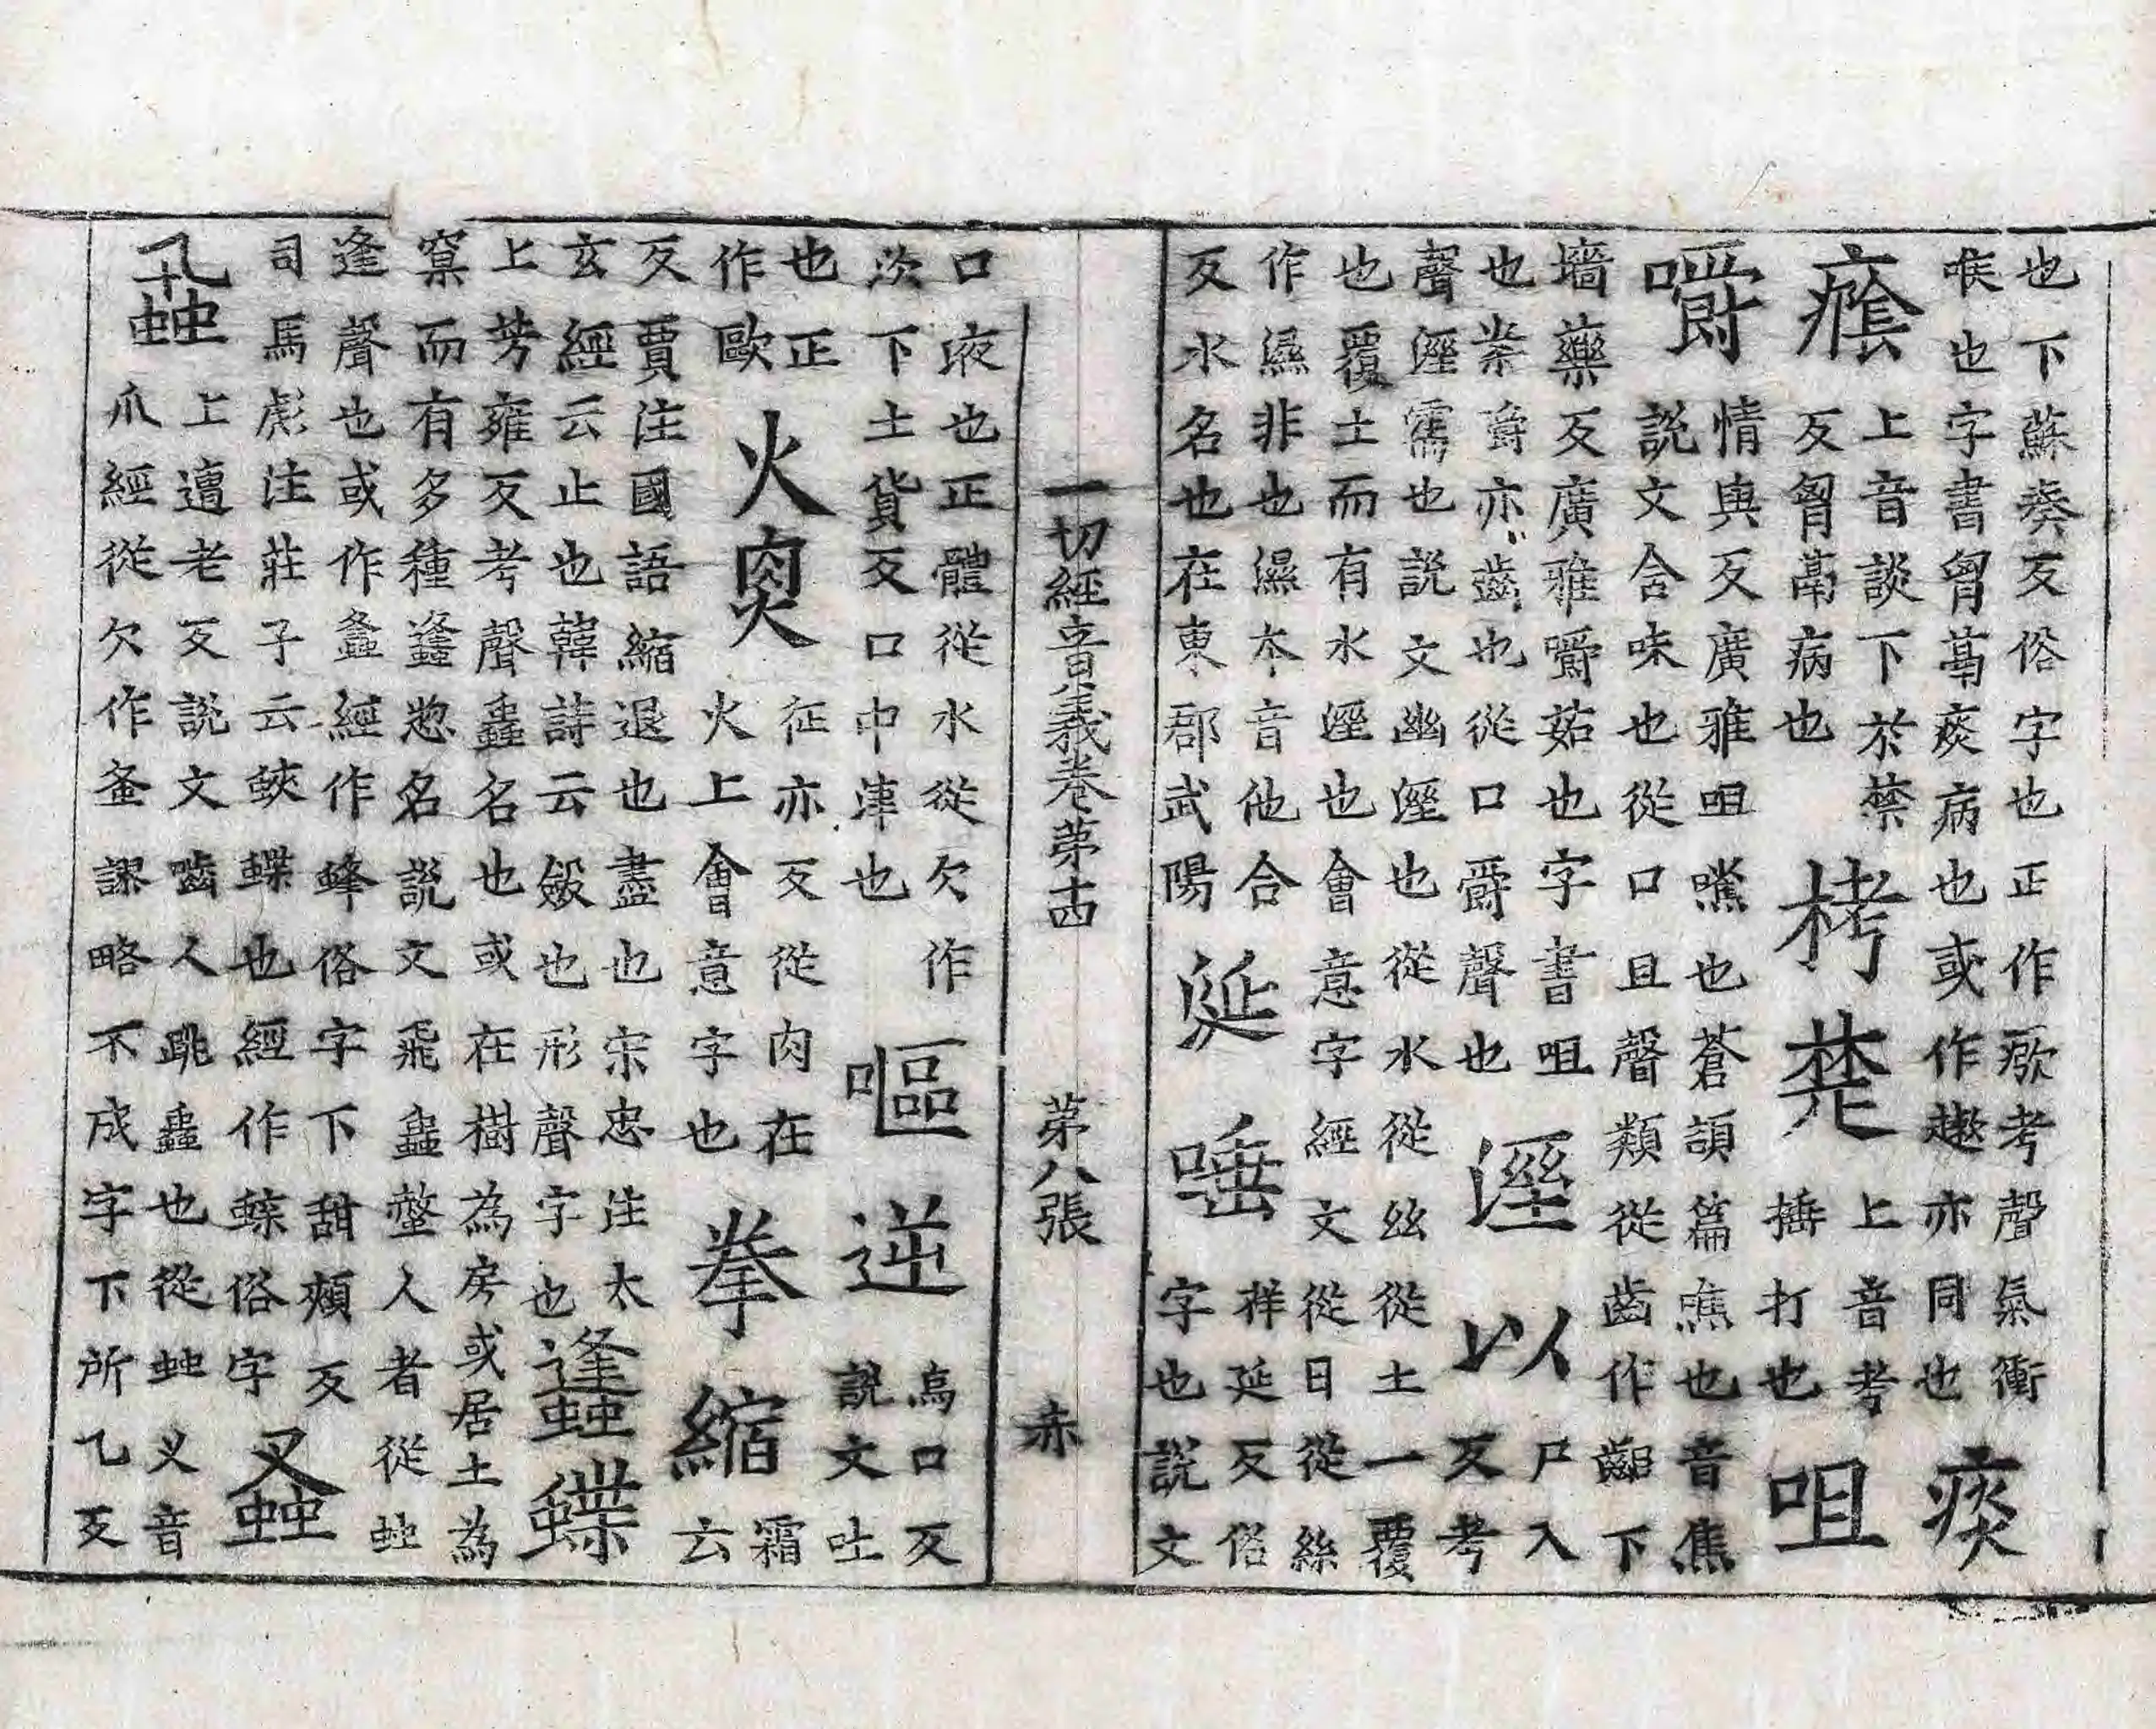 也下蘇奏反俗字也正作瘶考聲氣衝
喉也字書胷鬲痰病也或作亦同也痰
癊上音談下於禁
反胷鬲病也栲楚上音考
捶打也咀
嚼情與反廣雅咀噍也蒼頡篇噍也音焦
說文含味也從口且聲類從齒作齟下
墻藥反廣雅嚼茹也字書咀
也嚼亦齒也從口爵聲也溼以尸入
反考
聲溼霑也說文幽溼也從水從絲從土一覆
也覆土而有水溼也會意字經文從日從絲
作濕非也濕本音他合
反水名也在東郡武陽涎唾祥延反俗
字也說文
一切經音義卷第十四 第八張 赤
口液也正體從水從欠作
㳄下土貨反口中津也嘔逆烏口反
說文吐
也正
作歐火炙征亦反從肉在
火上會意字也拳縮霜
云
反賈注國語縮退也盡也宋忠注太
玄經云止也韓詩云斂也形聲字也蠭蝶
上芳雍反考聲蟲名也或在樹為房或居土為
窠而有多種蠭惣名說文飛蟲螫人者從䖵
逢聲也或作螽經作蜂俗字下甜頰反
司馬彪注莊子云蛺蝶也經作蝶俗字蚤
蝨上遭老反說文嚙人跳蟲也從䖵叉音
爪經從欠作蚤謬略不成字下所乙反